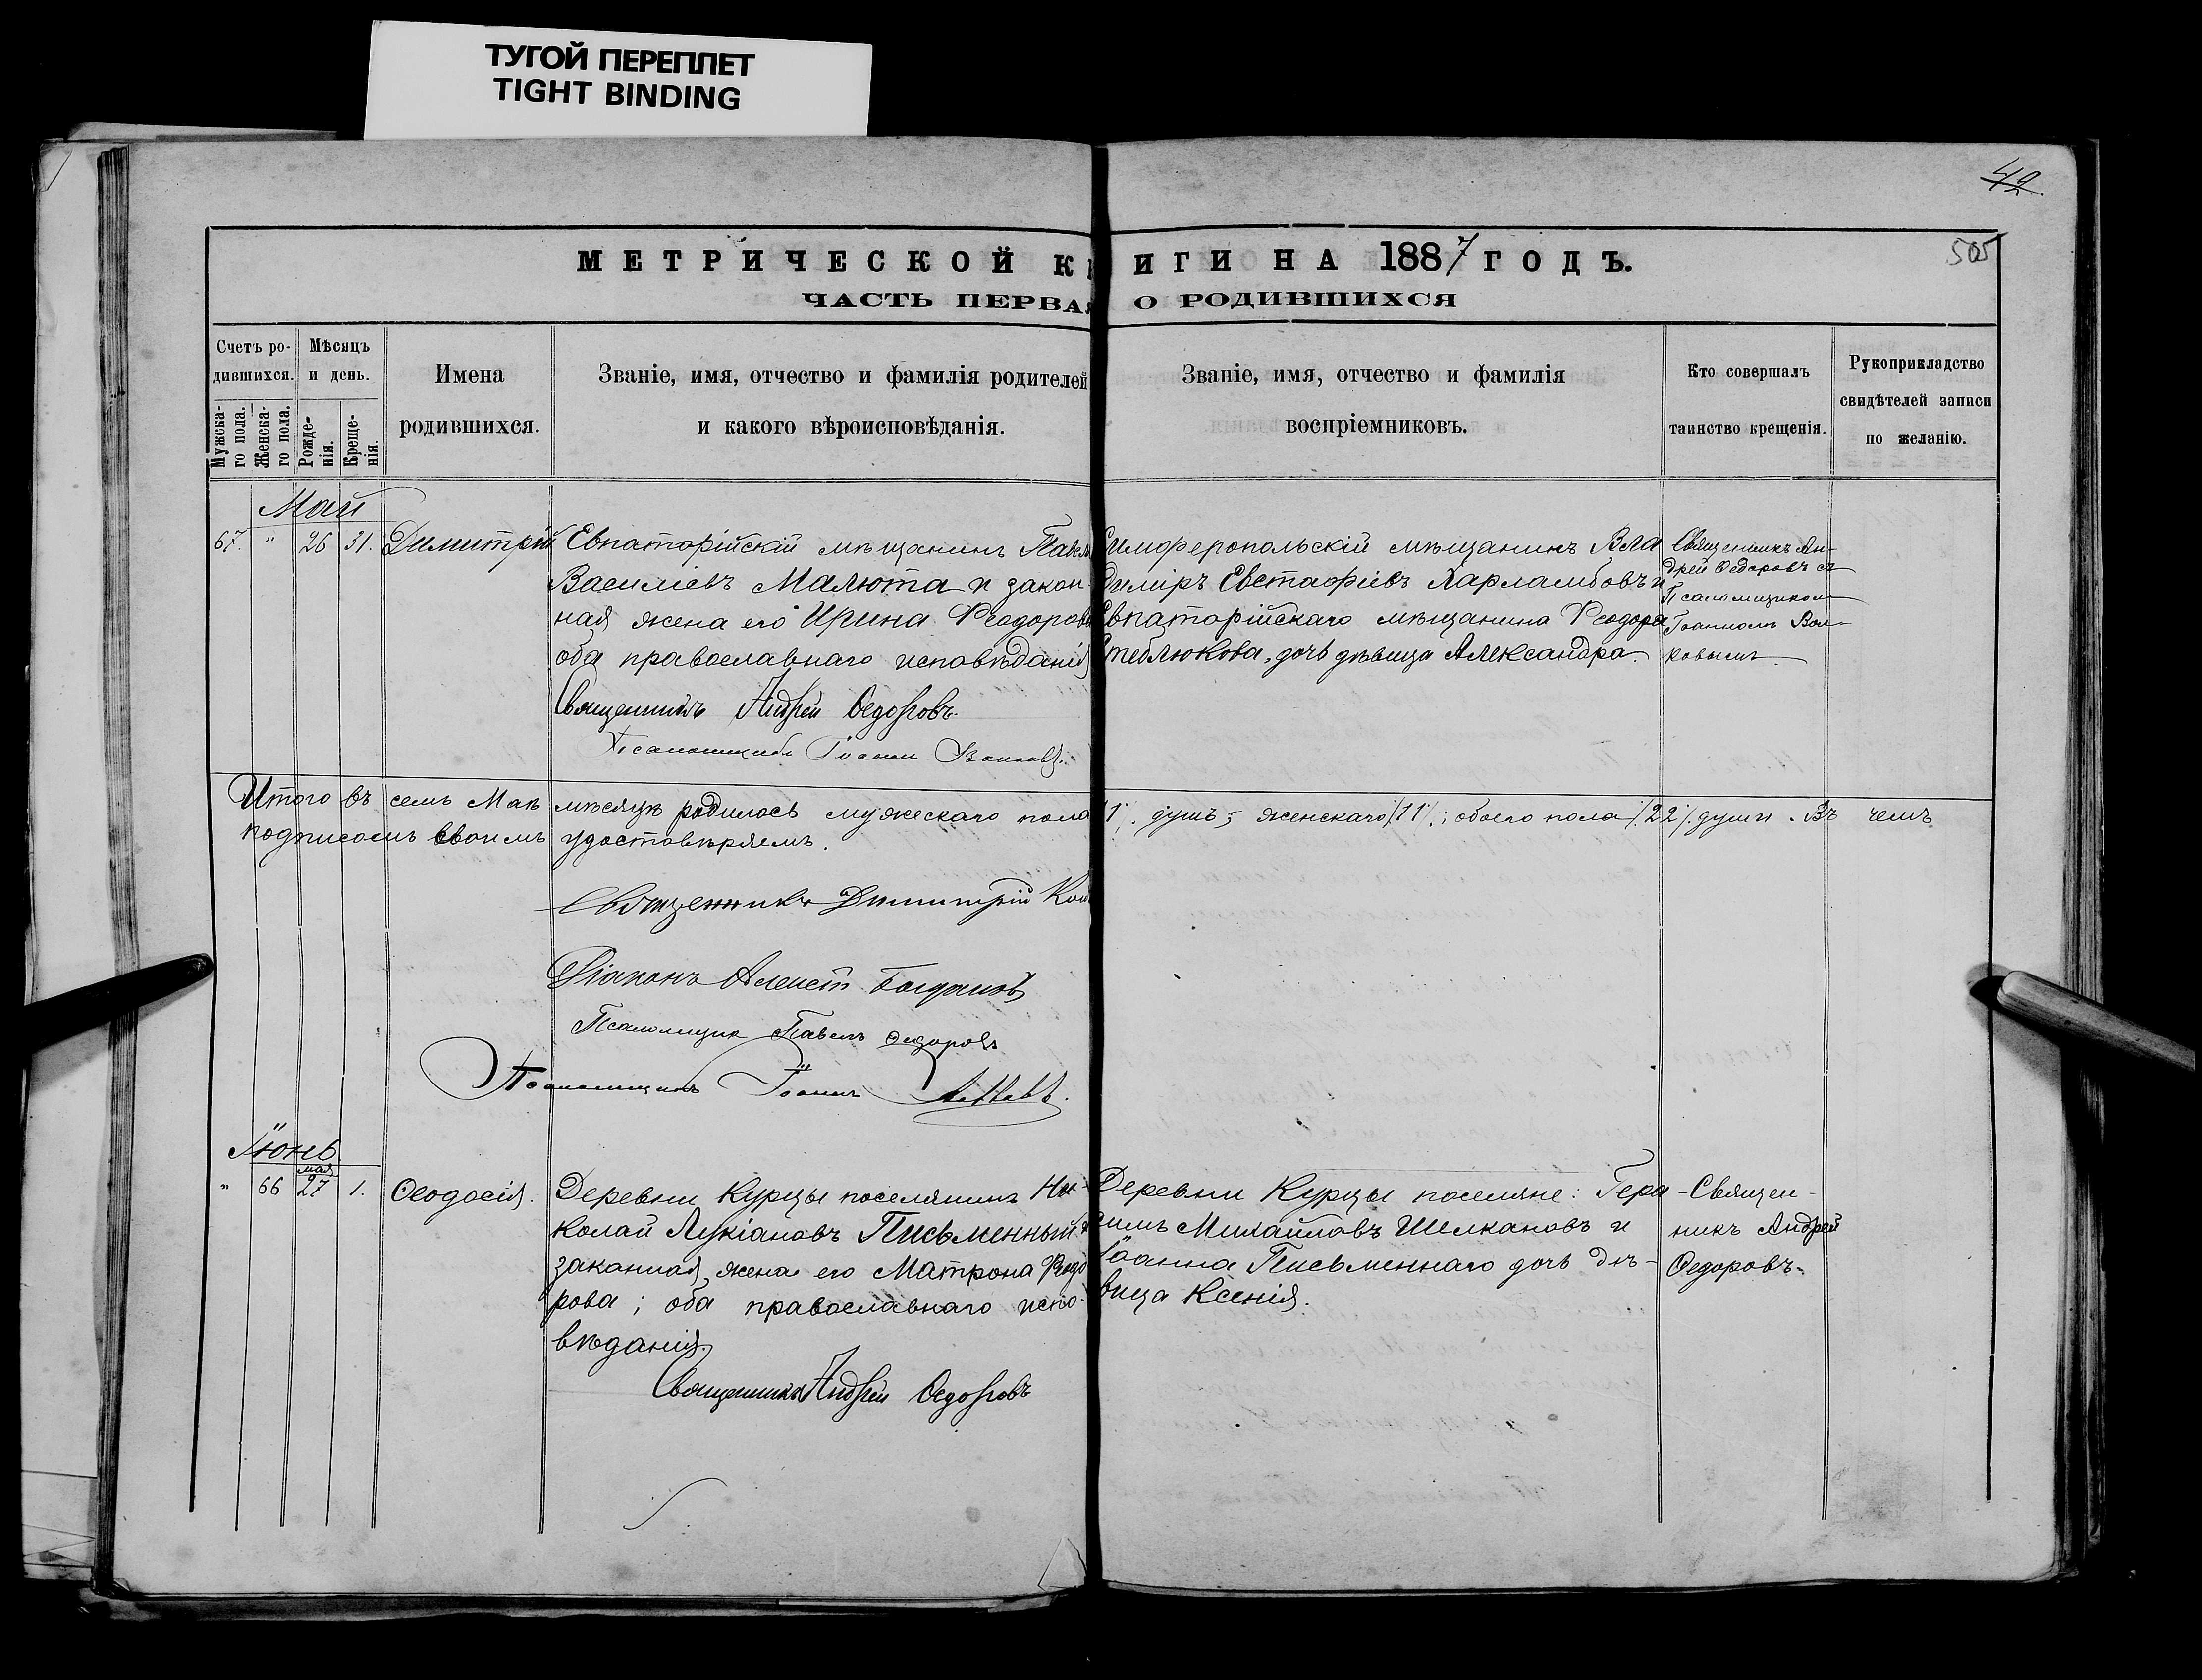 ТУГОЙ ПЕРЕПЛЕТ
TIGHT BINDING
42
505
МЕТРИЧЕСКОЙ К
ИГИ НА 1887 ГОДЪ.
ЧАСТЬ ПЕРВАЯ
О РОДИВШИХСЯ
Счетъ ро-
дившихся.
Мужска-
го пола.
Женска-
го пола.
Мѣсяцъ
и день.
Рожде-
нія.
Креще-
нія.
Имена
родившихся.
Званіе, имя, отчество и фамилія родителей
и какого вѣроисповѣданія.
Званіе, имя, отчество и фамилія
воспріемниковъ.
Кто совершалъ
таинство крещенія.
Рукоприкладство
свидѣтелей записи
по желанію.
Май
67. " 26 31. Димитрій
Евпаторійскій мѣщанинъ Павел
Василіевъ Малюта и закон
ная жена его Ирина Ѳеодоров
оба православнаго исповѣданія
Священникъ Андрей Ѳедоровъ.
Псаломщикъ Іоаннъ
Симферопольскій мѣщанинъ Вла
диміръ Евстафіевъ Харламбовъ и
Евпаторійскаго мѣщанина Ѳеодора
Стеблюкова, дочь дѣвица Александра.
Священникъ Ан-
дрей Ѳедоровъ съ
Псаломщиком
Іоанномъ Вол-
ковымъ.
Итого въ семъ Маѣ мѣсяцѣ родилось мужескаго пола 11. душъ, женскаго /11/.; обоего пола /22/. души. Въ чемъ
подписомъ своимъ удостовѣряемъ.
Священникъ Димитрій Кой
Діаконъ Алексѣй Богдановъ
Псаломщик Павелъ Ѳедоровъ
Псаломщикъ Іоаннъ
Іюнь
мая
" 66 27 1. Ѳеодосія.
Деревни Курцы поселянинъ Ни-
колай Лукіановъ Письменный и
законная жена его Матрона Ѳеодо
рова; оба православнаго испо-
вѣданія.
Священникъ Андрей Ѳедоровъ
Деревни Курцы поселяне: Гера
симъ Михайловъ Шелкановъ и
Іоанна Письменнаго дочь дѣ-
вица Ксенія.
Священ-
никъ Андрей
Ѳедоровъ.